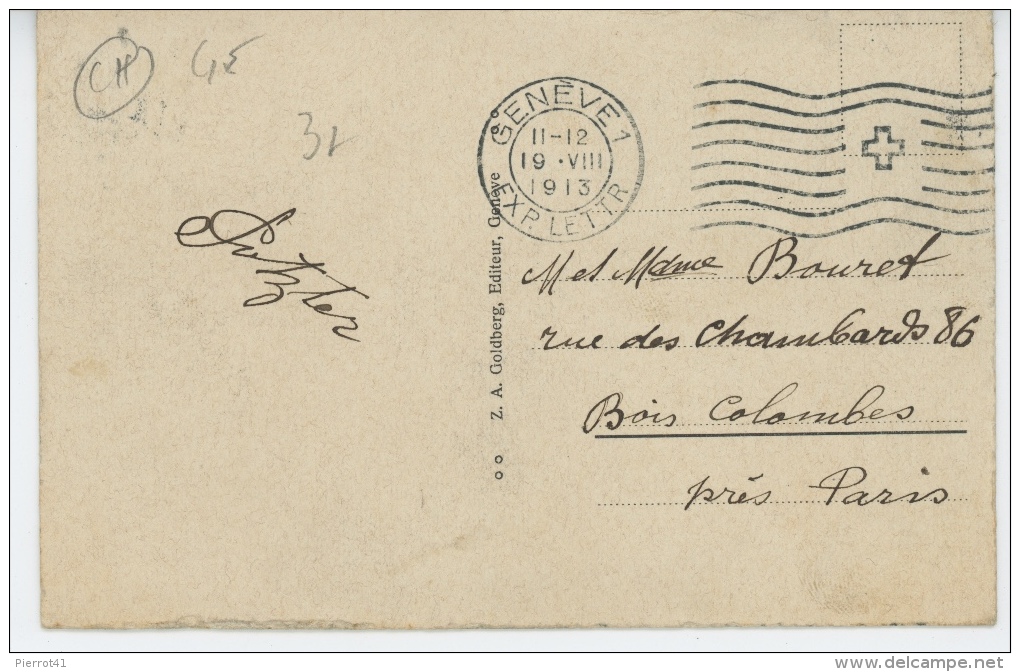 CH
GE
GENÈVE 1
11-12
19·VIII
1913
EXP. LETTR
Z. A. Goldberg, Editeur, Genève
M et Mdme Bouret
rue des Chambards 86
Bois Colombes
près Paris
Pierrot41
www.delcampe.net